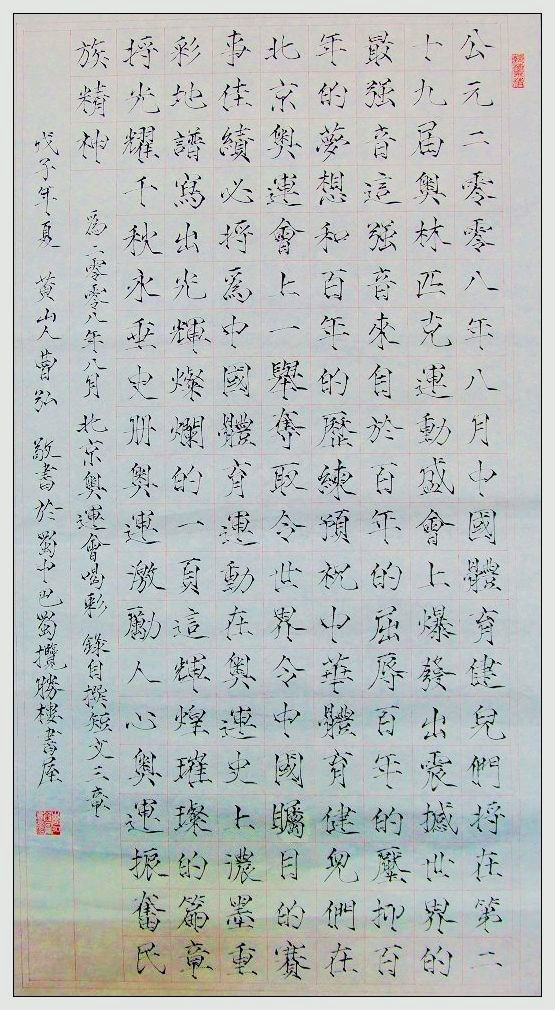 公元二零零八年八月中國體育健兒們將在第二
十九屆奧林匹克運動盛會上爆發出震撼世界的
最强音這强音來自於百年的屈辱百年的壓抑百
年的夢想和百年的歷練預祝中華體育健兒們在
北京奧運會上一舉奪取令世界令中國矚目的賽
事佳績必將爲中國體育運動在奧運史上濃墨重
彩地譜寫出光輝燦爛的一頁這輝煌璀璨的篇章
將光耀千秋永垂史册奧運激勵人心奧運振奮民
族精神 爲二零零八年八月 北京奧運會喝彩 錄自撰短文三章
戊子年夏 黄山人曹弘 敬書於蜀中巴蜀攬勝樓書屋